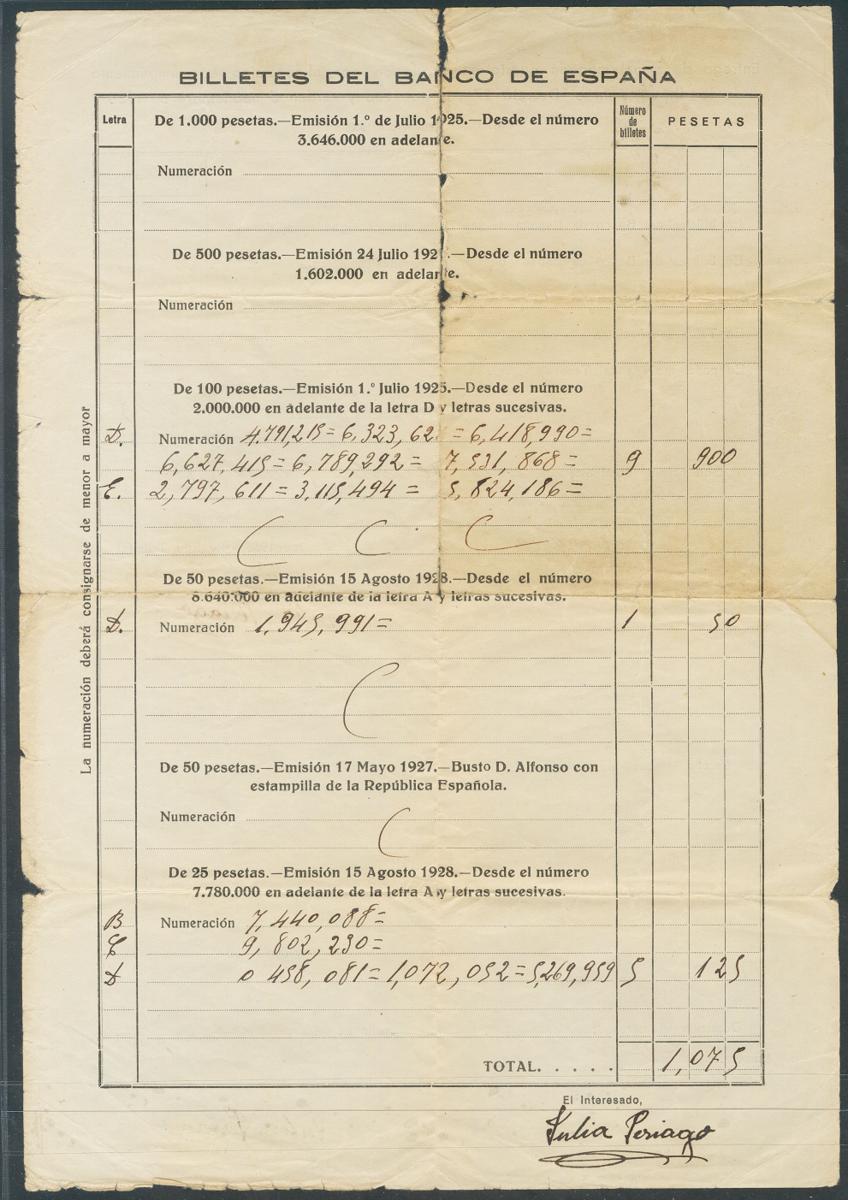 BILLETES DEL BANCO DE ESPAÑA
Letra
Número de billetes
PESETAS
De 1.000 pesetas.—Emisión 1.º de Julio 1925.—Desde el número
3.646.000 en adelante.
Numeración
De 500 pesetas.—Emisión 24 Julio 192 .—Desde el número
1.602.000 en adelante.
Numeración
De 100 pesetas.—Emisión 1.º Julio 1925.—Desde el número
2.000.000 en adelante de la letra D y letras sucesivas.
D. Numeración 4.791,215= 6,323,62 = 6,418,990=
6,627,415= 6,789,292= 7,531,868= 9 900
E. 2,797,611= 3,115,494= 5,824,186=
De 50 pesetas.—Emisión 15 Agosto 1928.—Desde el número
5.640.000 en adelante de la letra A y letras sucesivas.
D. Numeración 1,945,991= 1 50
De 50 pesetas.—Emisión 17 Mayo 1927.—Busto D. Alfonso con
estampilla de la República Española.
Numeración
De 25 pesetas.—Emisión 15 Agosto 1928.—Desde el número
7.780.000 en adelante de la letra A y letras sucesivas.
B Numeración 7,440,088=
C 9,802,230=
D 0 458,081= 1,072,052= 5,269,959 5 125
TOTAL. . . . . 1,075
El Interesado,
Julia Periago
La numeración deberá consignarse de menor a mayor